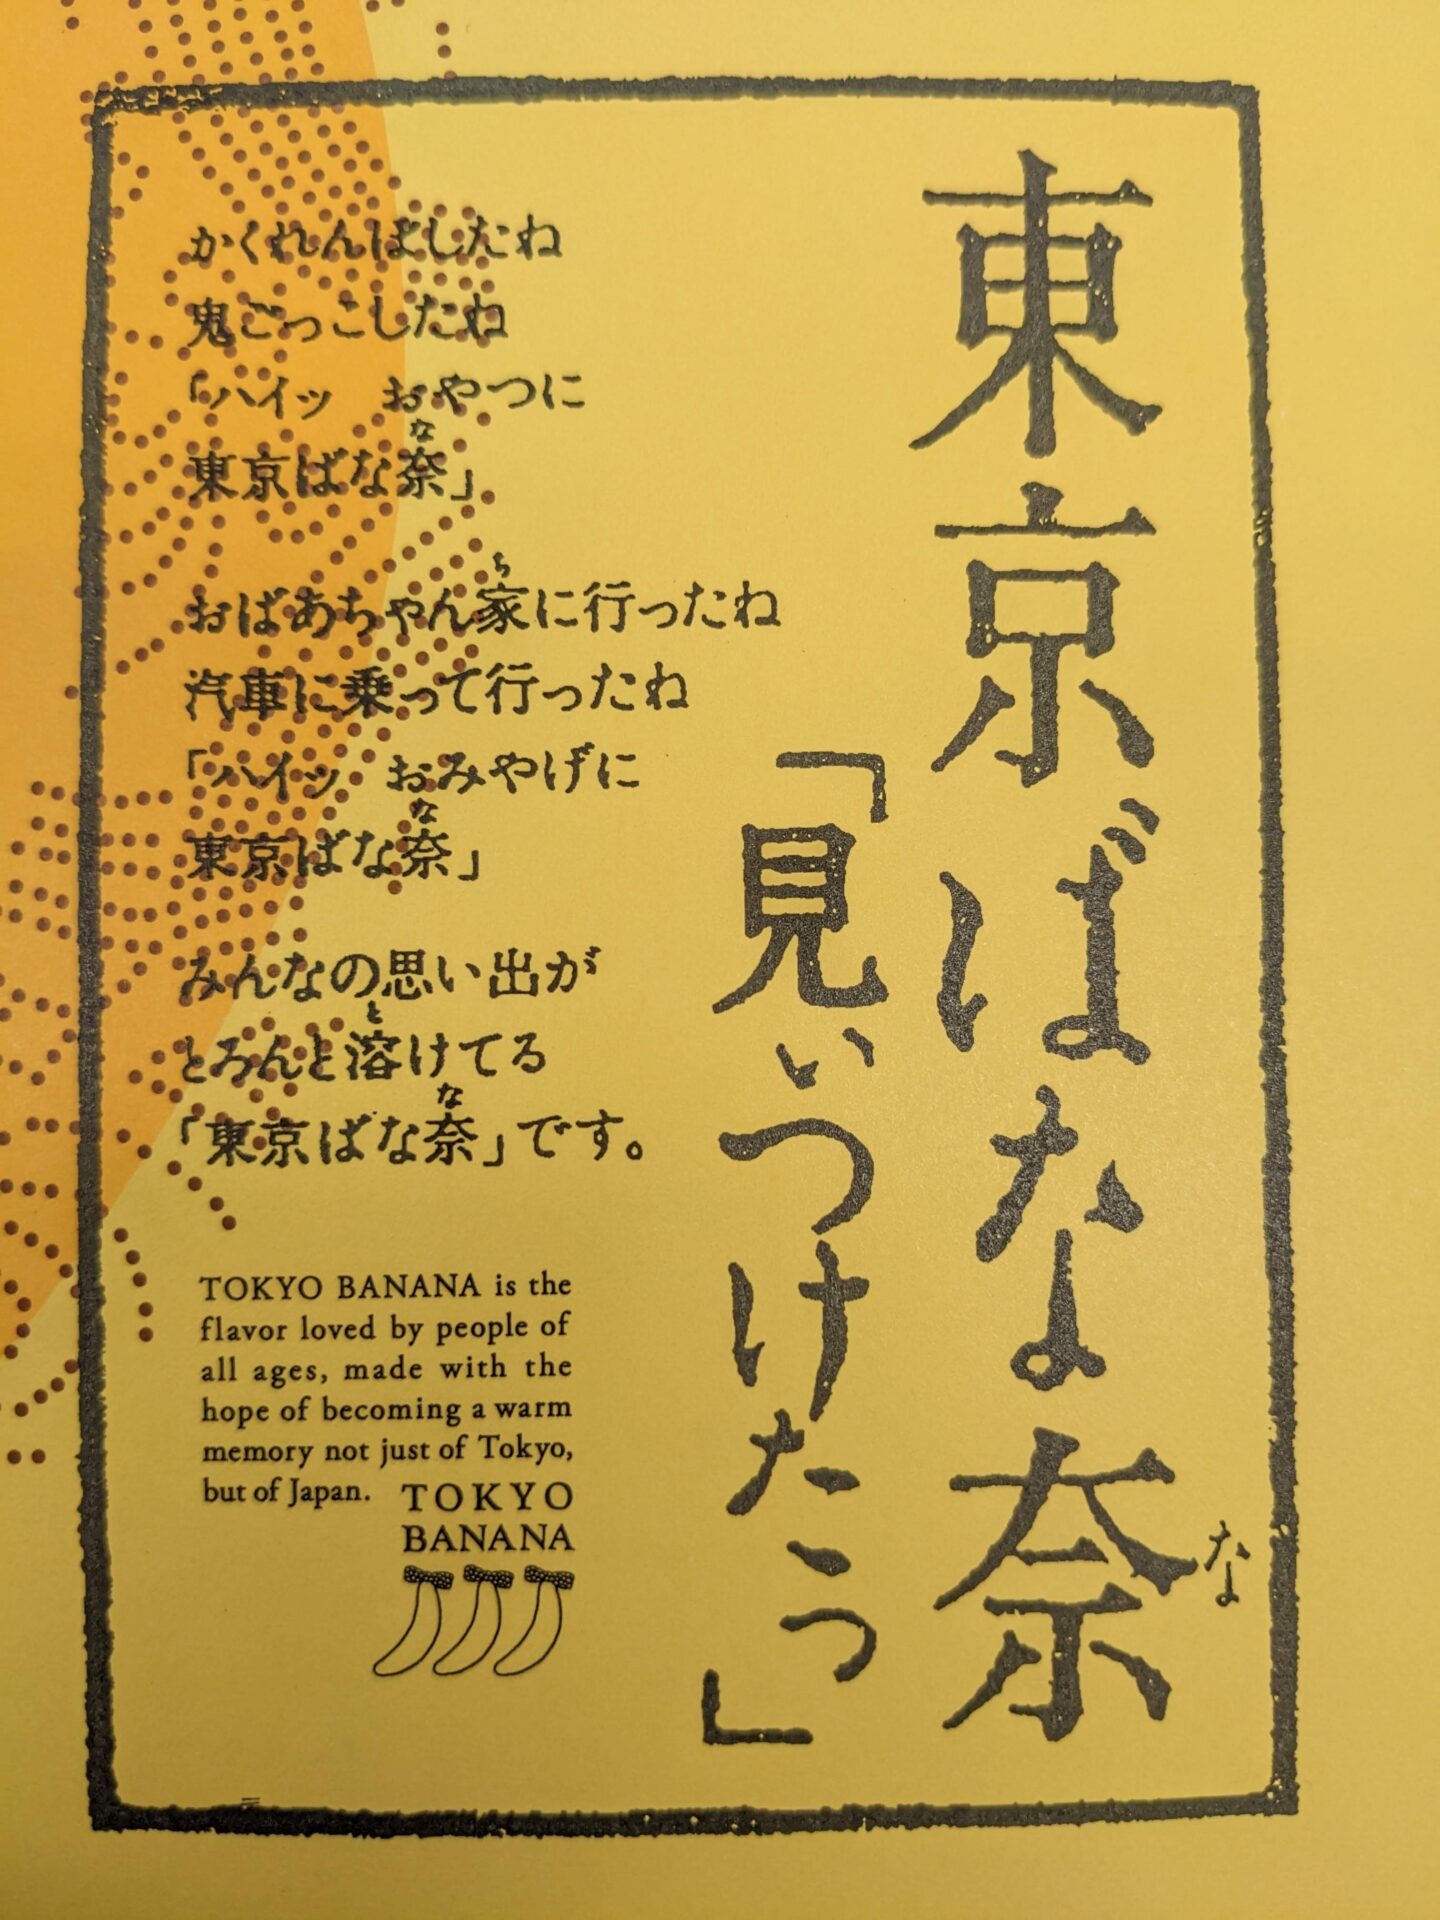 東京ばな奈
な
「見ぃつけたっ」
かくれんぼしたね
鬼ごっこしたね
「ハイッ　おやつに
な
東京ばな奈」
ち
おばあちゃん家に行ったね
汽車に乗って行ったね
「ハイッ　おみやげに
な
東京ばな奈」
みんなの思い出が
と
とろんと溶けてる
な
「東京ばな奈」です。
TOKYO BANANA is the
flavor loved by people of
all ages, made with the
hope of becoming a warm
memory not just of Tokyo,
but of Japan.
TOKYO
BANANA